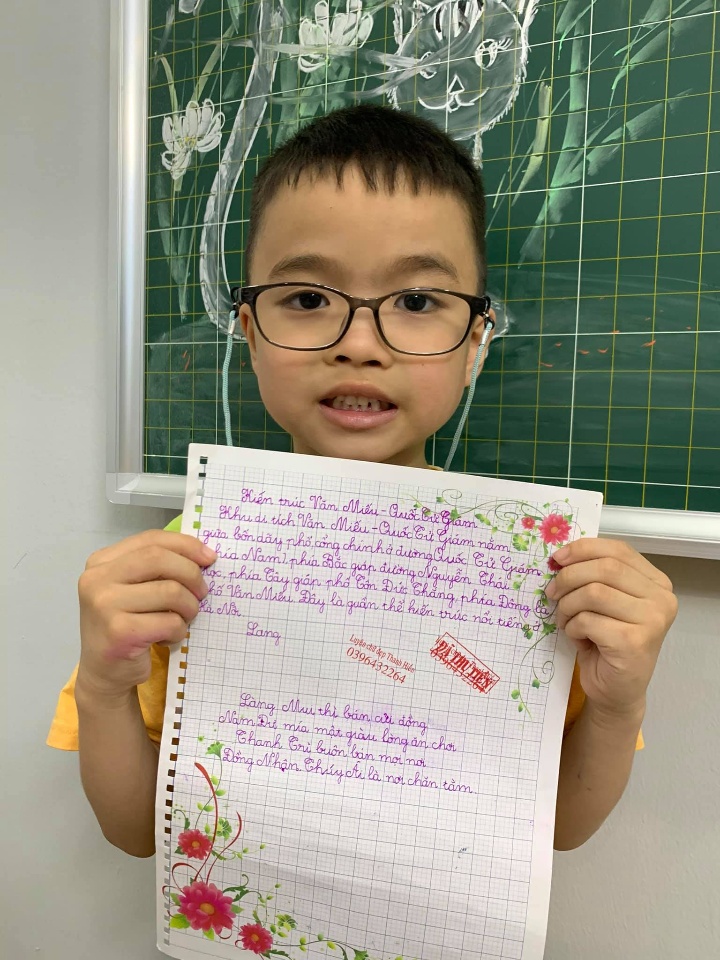 Kiến trúc Văn Miếu - Quốc Tử Giám
Khu di tích Văn Miếu - Quốc Tử Giám nằm
giữa bốn dãy phố, cổng chính ở đường Quốc Tử Giám
phía Nam, phía Bắc giáp đường Nguyễn Thái
Học, phía Tây giáp phố Tôn Đức Thắng, phía Đông là
phố Văn Miếu. Đây là quần thể kiến trúc nổi tiếng ở
Hà Nội
Lang
Luyện chữ đẹp Thanh Hiền
0396432264
0396432264
Làng Mui thì bán củi đồng
Nam Dư mía mật giàu lòng ăn chơi
Thanh Trì buôn bán mọi nơi
Đồng Nhân Thúy Ái là nơi chăn tằm.